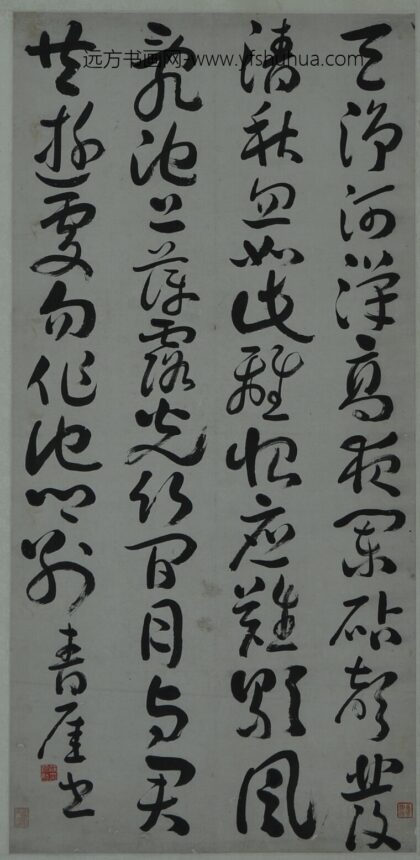 远方书画网-www.yfshuhua.com
天淨河漢高夜閑砧聲發
清秋忽如此離恨應難歇風
亂池上萍露光竹間月與君
共遊處勿作他鄉別 青厓書